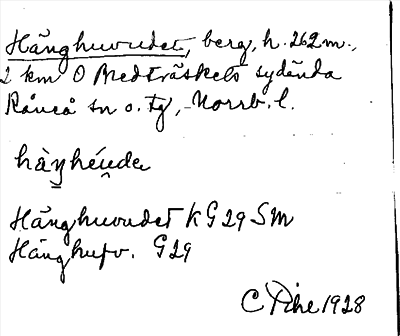 Hänghuvudet, berg, h. 262 m.,
2 km O Bredträskets sydända
Råneå sn o. tg, Norrb. l.
hàŋhéude
Hänghuvudet KG29SM
Hänghufv. G29
C Pihl 1928